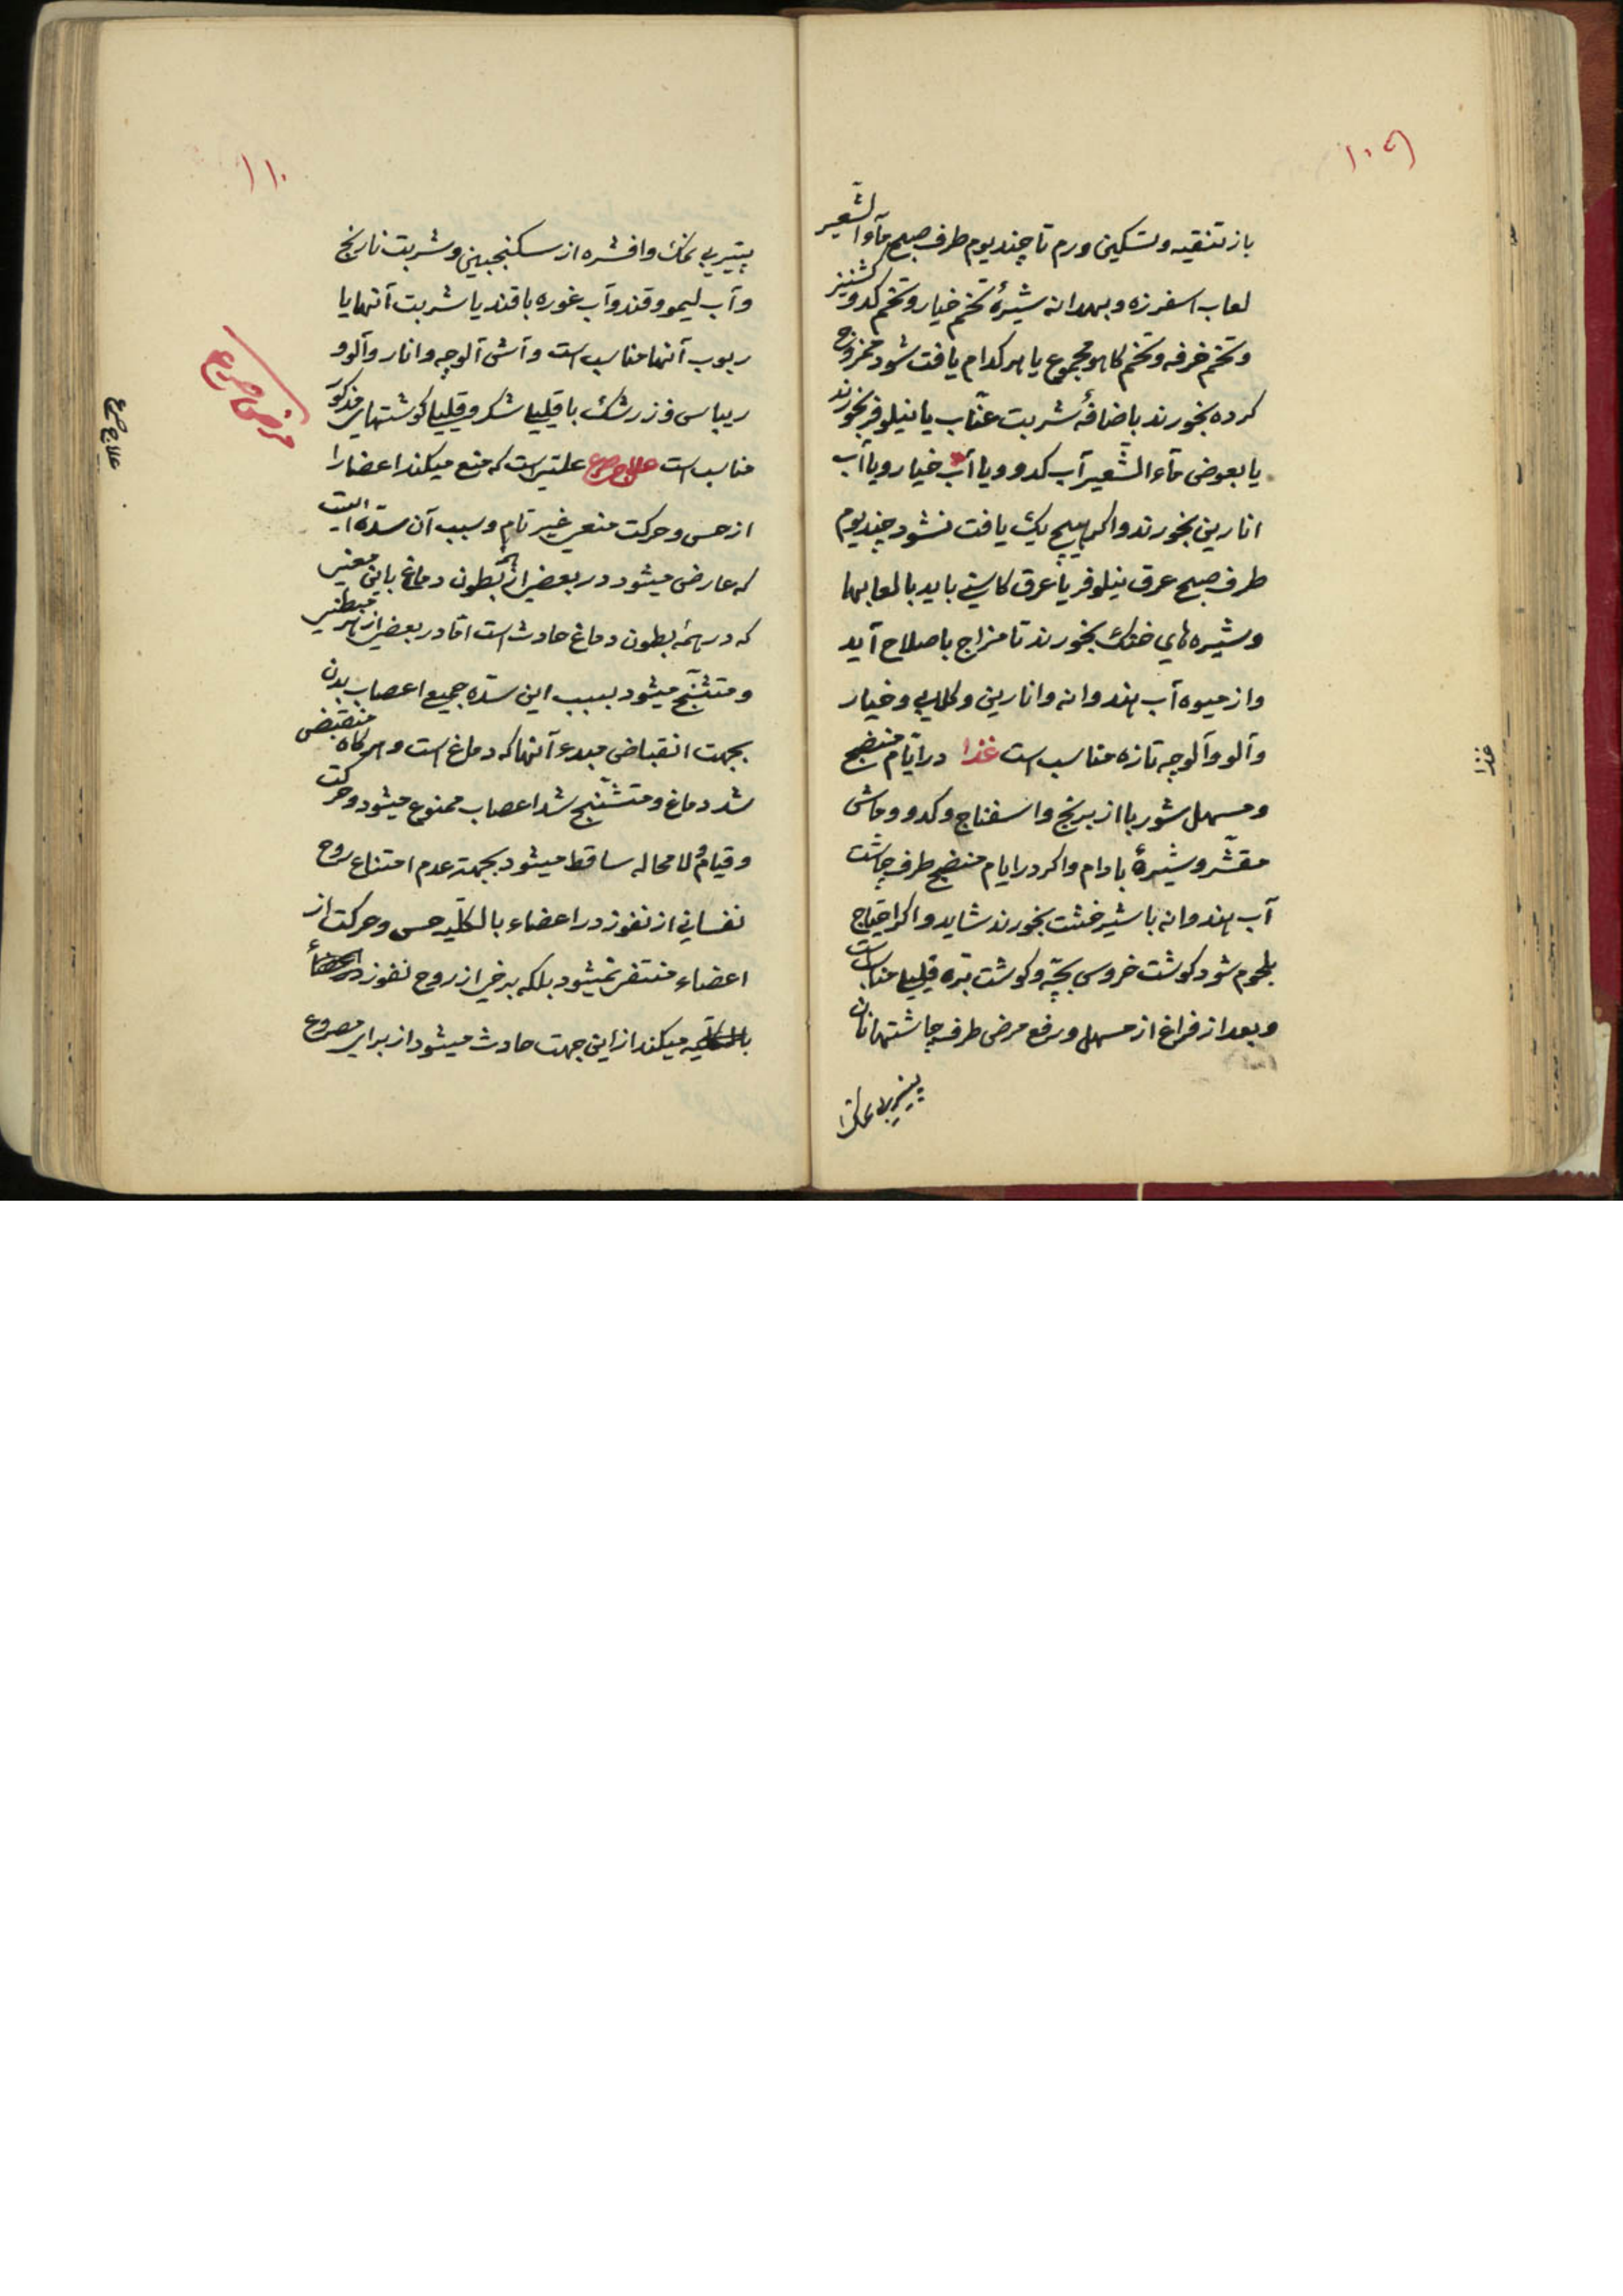 ۱۰۹
باز تنقیه و تسکین ورم تا چند یوم طرف صبح مآء الشعیر
لعاب اسفرزه و بهدانه شیرهٔ تخم خیار و تخم کدو و کشنیز
و تخم خرفه و تخم کاهو مجموع یا هر کدام یافت شود ممزوج
کرده بخورند باضافهٔ شربت عنّاب یا نیلوفر بخورند
یا بعوض مآء الشعیر آب کدو و یا آب خیار و یا آب
انارین بخورند و اکر هیچ یک یافت نشود چند یوم
طرف صبح عرق نیلوفر یا عرق کاسنی باید با لعابها
و شیره های خنک بخورند تا مزاج باصلاح آید
و از میوه آب هندوانه و انارین و کلابی و خیار
و آلو و آلوچه تازه مناسب است غذا در ایّام منضج
و مسهل شوربا از برنج و اسفناج و کدو و ماش
مقشّر و شیرهٔ بادام و اکر در ایام منضج طرف چاشت
آب هندوانه با شیرخشت بخورند شاید و اکر احتیاج
بلحوم شود کوشت خروس بچّه و کوشت برّه قلیلا مناسب است
و بعد از فراغ از مسهل و رفع مرض طرف چاشتها نان
پنیر بی نمک و
غذا
۱۱۰
پنیر بی نمک و افشره از سکنجبین و شربت نارنج
و آب لیمو و قند و آب غوره با قند یا شربت آنها یا
ربوب آنها مناسب است و آش آلوچه و انار و آلو و
ریباس و زرشک با قلیلا شکر و قلیلا کوشتهای مذکور
مناسب است علاج صرع علتی است که منع میکند اعضا را
از حس و حرکت منعی غیر تام و سبب آن سدّه ایست
که عارض میشود در بعضی از بطون دماغ باین معنی
که در همهٔ بطون دماغ حادث است امّا در بعضی از هر بطنی
و متشنّج میشود بسبب این سدّه جمیع اعصاب بدن
بجهت انقباض مبدء آنها که دماغ است و هرکاه منقبض
شد دماغ و متشنّج شد اعصاب ممنوع میشود و حرکت
و قیام و لا محاله ساقط میشود بجهة عدم امتناع روح
نفسانی از نفوذ در اعضاء بالکلّیه حس و حرکت از
اعضاء منتفی نمیشود بلکه برخی از روح نفوذ در اعضأ
بالکلّیه میکند از این جهت حادث میشود از برای مصروع
مرض صرع
علاج صرع